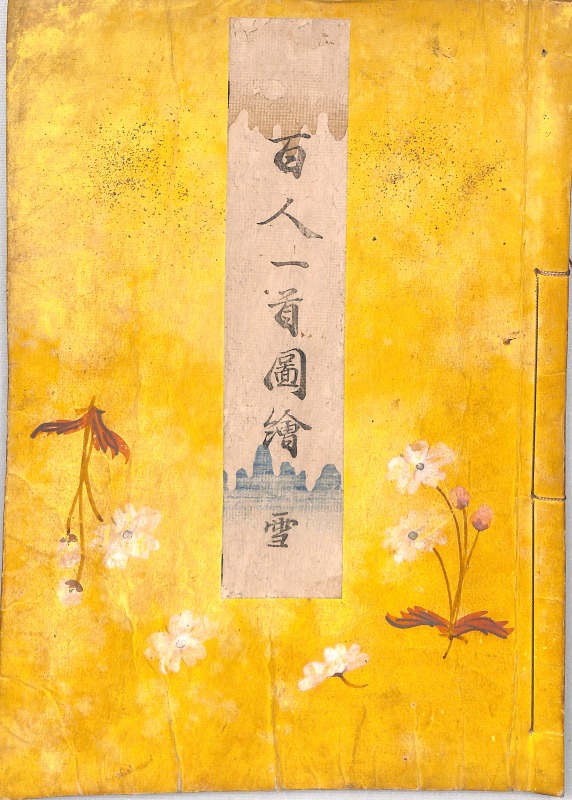 百人一首圖繪 雪